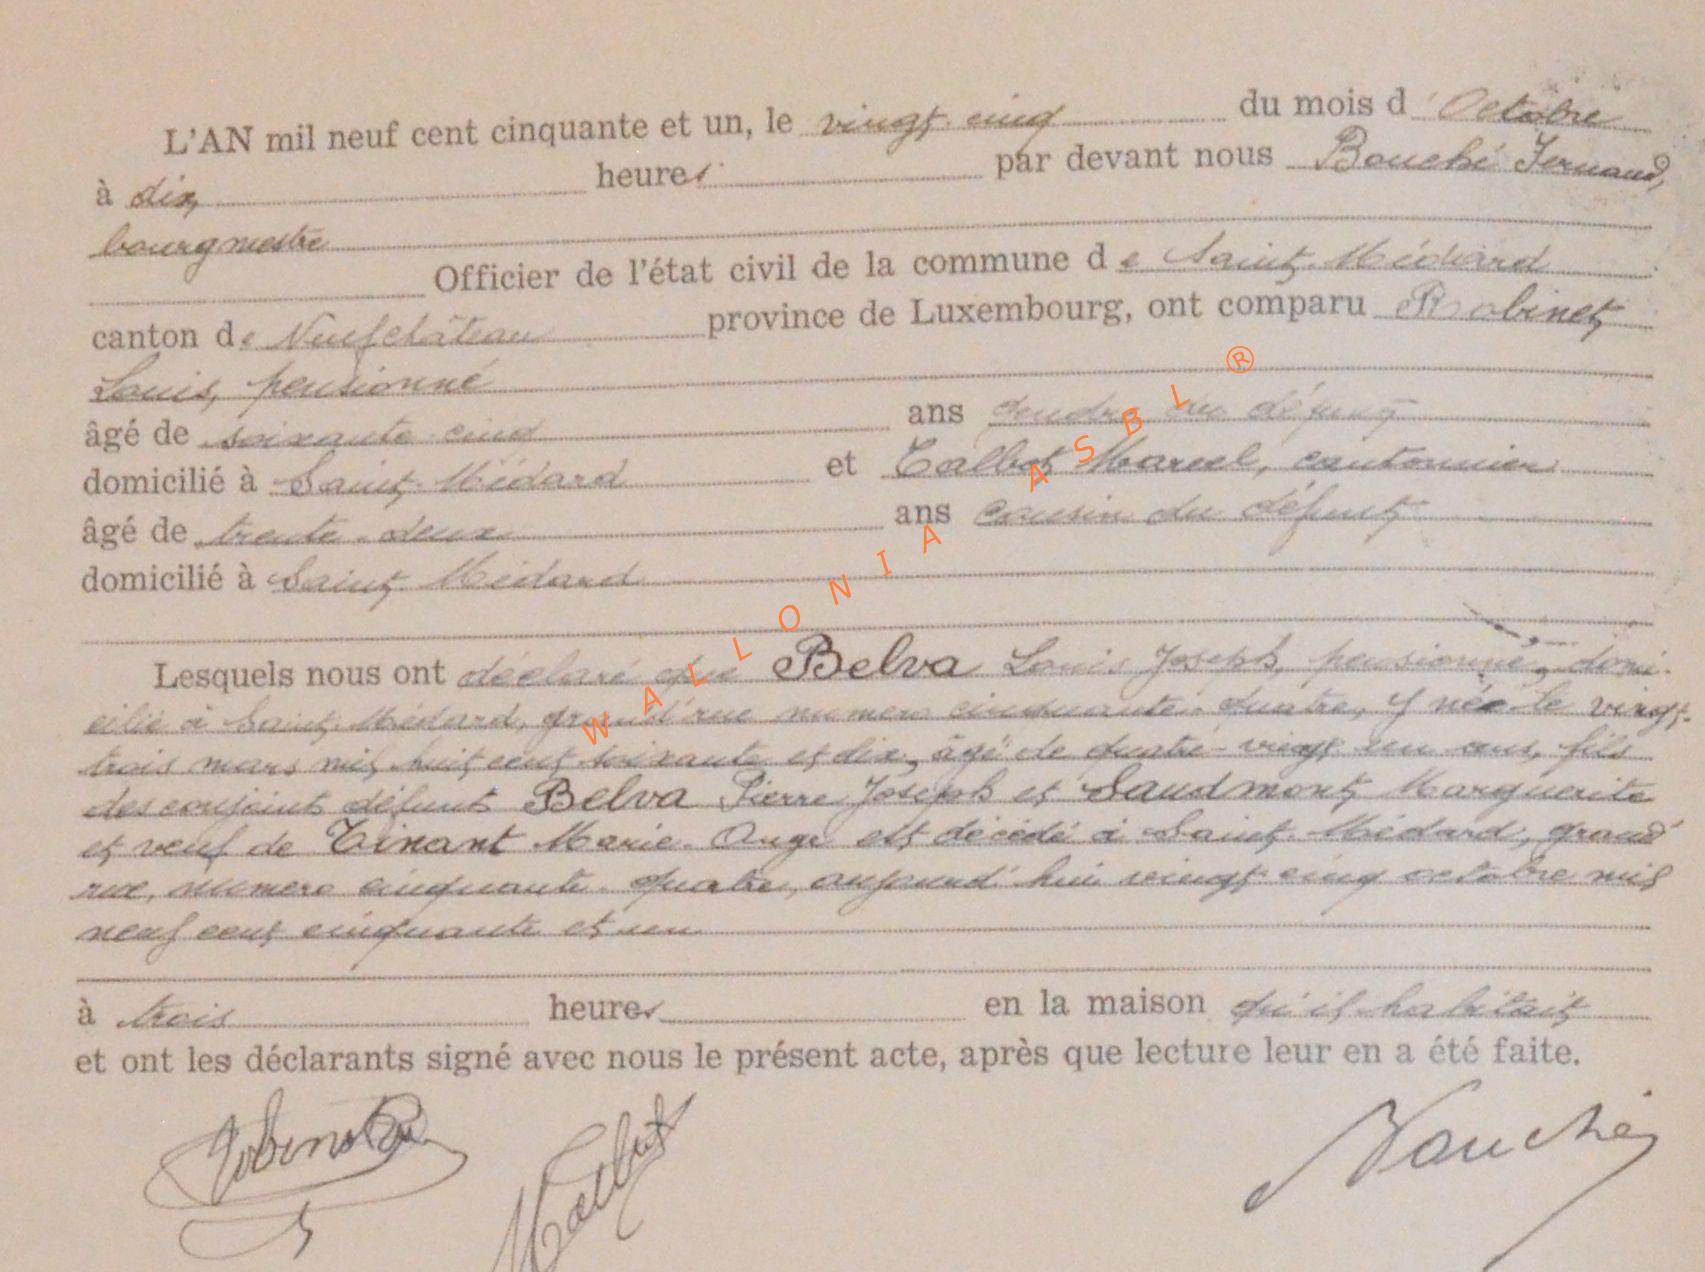 L'AN mil neuf cent cinquante et un, le vingt-cinq du mois d'Octobre
à dix heures par devant nous Bouché Fernand,
bourgmestre
Officier de l'état civil de la commune de Saint-Médard
canton de Neufchâteau province de Luxembourg, ont comparu Robinet
Louis, pensionné
âgé de soixante-cinq ans gendre du défunt
domicilié à Saint-Médard et Talbot Marcel, cantonnier
âgé de trente-deux ans cousin du défunt
domicilié à Saint-Médard
Lesquels nous ont déclaré que Belva Louis Joseph, pensionné, domi-
cilié à Saint-Médard, grand'rue numéro cinquante-quatre, y née le vingt-
trois mars mil huit cent soixante et dix, âgé de quatre-vingt un ans, fils
des conjoints défunts Belva Pierre Joseph et Saudmont Marguerite
et veuf de Tinant Marie-Ange est décédé à Saint-Médard, grand'
rue, numéro cinquante-quatre, aujourd'hui vingt-cinq octobre mil
neuf cent cinquante et un
à trois heures en la maison qu'il habitait
et ont les déclarants signé avec nous le présent acte, après que lecture leur en a été faite.
Robinet
Talbot
Bouché
WALLONIA ASBL ®